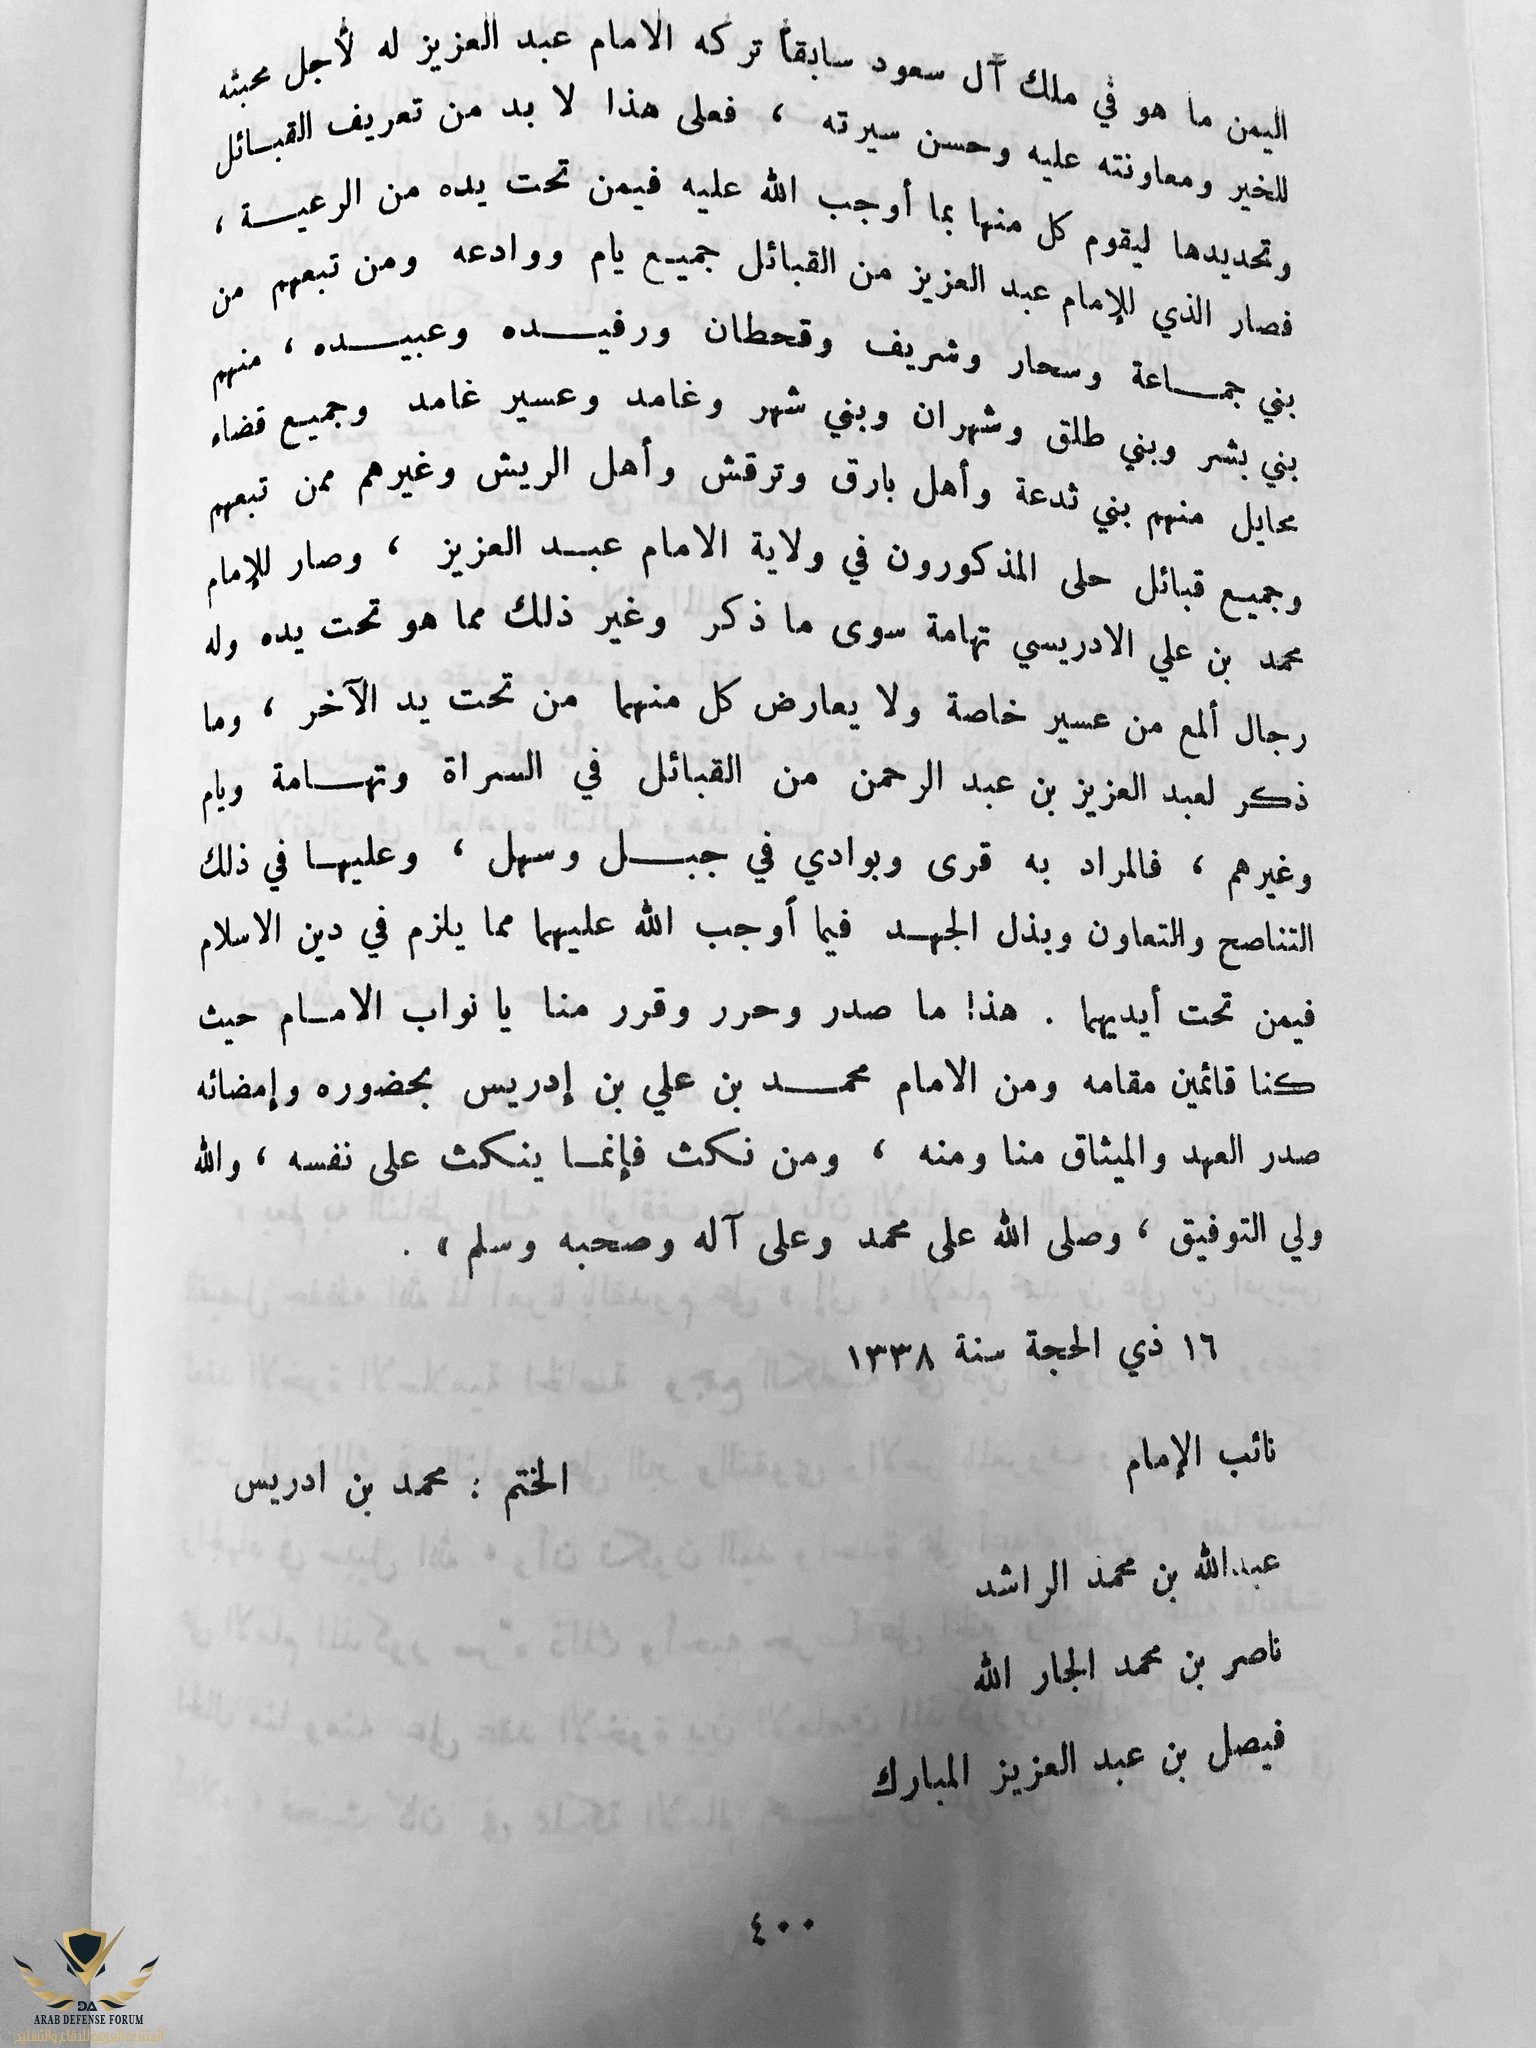 اليمن ما هو في ملك آل سعود سابقاً تركه الامام عبد العزيز له لأجل محبته
للخير ومعاونته عليه وحسن سيرته ، فعلى هذا لا بد من تعريف القبائل
وتحديدها ليقوم كل منها بما أوجب الله عليه فيمن تحت يده من الرعية ،
فصار الذي للإمام عبد العزيز من القبائل جميع يام ووادعه ومن تبعهم من
بني جماعة وسحار وشريف وقحطان ورفيده وعبيده ، منهم
بني بشر وبني طلق وشهران وبني شهر وغامد وعسير غامد وجميع قضاء
محايل منهم بني ثدعة وأهل بارق وترقش وأهل الريش وغيرهم ممن تبعهم
وجميع قبائل حلى المذكورون في ولاية الامام عبد العزيز ، وصار للإمام
محمد بن علي الادريسي تهامة سوى ما ذكر وغير ذلك مما هو تحت يده وله
رجال ألمع من عسير خاصة ولا يعارض كل منهما من تحت يد الآخر ، وما
ذكر لعبد العزيز بن عبد الرحمن من القبائل في السراة وتهامة ويام
وغيرهم ، فالمراد به قرى وبوادي في جبل وسهل ، وعليها في ذلك
التناصح والتعاون وبذل الجهد فيما أوجب الله عليهما مما يلزم في دين الاسلام
فيمن تحت أيديهما . هذا ما صدر وحرر وقرر منا يا نواب الامام حيث
كنا قائمين مقامه ومن الامام محمد بن علي بن إدريس بحضوره وإمضائه
صدر العهد والميثاق منا ومنه ، ومن نكث فإنما ينكث على نفسه ، والله
ولي التوفيق ، وصلى الله على محمد وعلى آله وصحبه وسلم » .
١٦ ذي الحجة سنة ١٣٣٨
نائب الإمام
الختم : محمد بن ادريس
عبدالله بن محمد الراشد
ناصر بن محمد الجار الله
فيصل بن عبد العزيز المبارك
٤٠٠
DA
ARAB DEFENSE FORUM
المنتدى العربي للدفاع والتسليح